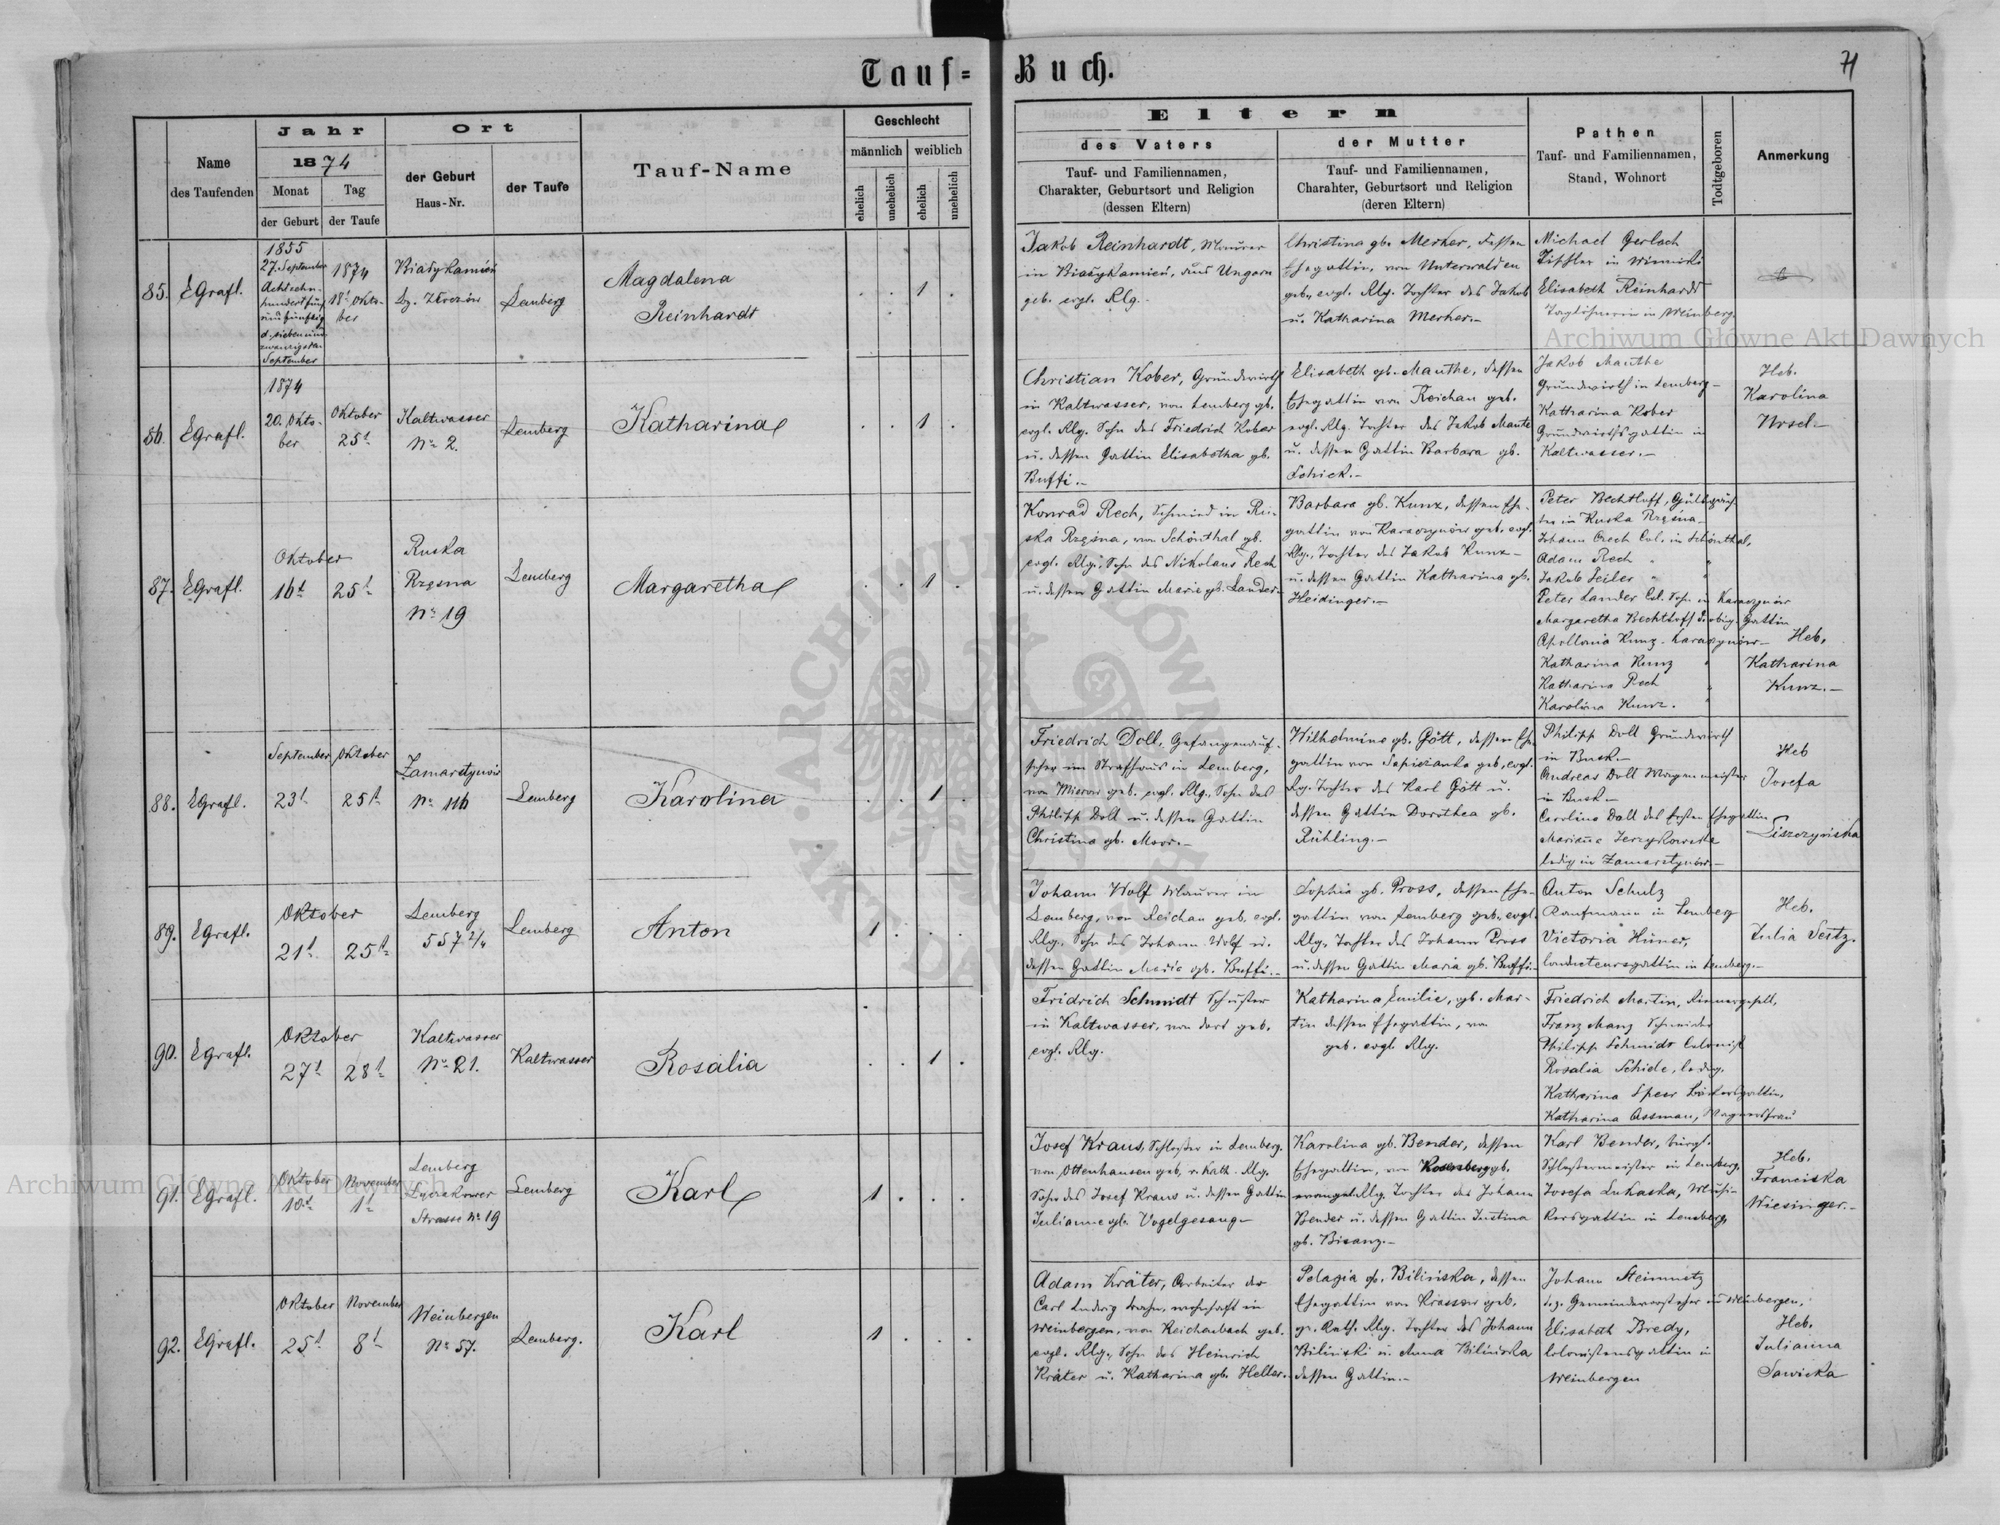 Tauf=
Buch.
71
Name
des Taufenden
Jahr
1874
Monat
der Geburt
Tag
der Taufe
Ort
der Geburt
Haus-Nr.
der Taufe
Tauf-Name
Geschlecht
männlich
weiblich
ehelich
unehelich
ehelich
unehelich
Eltern
des Vaters
Tauf- und Familiennamen,
Charakter, Geburtsort und Religion
(dessen Eltern)
der Mutter
Tauf- und Familiennamen,
Charahter, Geburtsort und Religion
(deren Eltern)
Pathen
Tauf- und Familiennamen,
Stand, Wohnort
Todtgeboren
Anmerkung
85.
EGrafl.
1855
27. September
Achtzehn-
hundertfünf
und fünfzig
d. sieben und
zwanzigsten
September
1874
18t Okto-
ber
Białykamień
Lemberg
Magdalena
Reinhardt
1
Jakob Reinhardt, Maurer
in Białykamień, aus Ungarn
geb. evgl. Rlg.
Christina gb. Merker, dessen
Ehegattin, von Unterwalden
geb. evgl. Rlg. Tochter des Jakob
u. Katharina Merker.-
Michael Gerlach
in Winniki
Elisabeth Reinhardt
Taglöhnerin in Weinberg.
86.
EGrafl.
1874
20. Okto-
ber
Oktober
25t
Kaltwasser
No 2.
Lemberg
Katharina
1
Christian Kober, Grundwirth
in Kaltwasser, von Lemberg gb.
evgl. Rlg. Sohn des Friedrich Kober
u. dessen Gattin Elisabetha gb.
Buffi.-
Elisabeth gb. Manthe, dessen
Ehegattin von Reichau geb.
evgl. Rlg. Tochter des Jakob Mante
u. dessen Gattin Barbara gb.
Schick.-
Jakob Manthe
Grundwirth in Lemberg-
Katharina Kober
Grundwirthsgattin in
Kaltwasser.-
Heb.
Karolina
Ursel-
87.
EGrafl.
Oktober
16t
25t
Ruska
Rzęsna
No 19
Lemberg
Margaretha
1
Konrad Rech, Schmied in Rus-
ska Rzęsna, von Schönthal gb.
evgl. Rlg. Sohn des Nikolaus Rech
u. dessen Gattin Marie gb. Lander-
Barbara gb. Kunz, dessen Ehe-
gattin von Karaczynów geb. evgl.
Rlg., Tochter des Jakob Kunz-
u. dessen Gattin Katharina gb.
Heidinger.-
Peter Bechtloff,
in Ruska Rzęsna-
Johann Col. in Schönthal,
Adam Rech "
Jakob "
Peter Lander Col. Sohn in Karaczynów
Margaretha Bechtloff Gattin
Apollonia Kunz - Karaczynów-
Katharina Kunz "
Katharina Rech "
Karolina Kunz.
Heb.
Katharina
Kunz.-
88.
EGrafl.
September
23t
Oktober
25t
Zamarstynów
No 116
Lemberg
Karolina
1
Friedrich Doll, Gefangenauf-
seher im Strafhaus in Lemberg,
von geb. evgl. Rlg. Sohn des
Philipp Doll u. dessen Gattin
Christina gb. Moor.-
Wilhelmine gb. Gött, dessen Ehe-
gattin von Sapieżanka geb. evgl.
Rlg. Tochter des Karl Gött u.
dessen Gattin Dorothea gb.
Rühling.-
Philipp Doll Grundwirth
in Busk.-
Andreas Doll Wagenmeister
in Busk-
Carolina Doll des Ersten Ehegattin
Marianna Jerzykowska
ledig in Zamarstynów-
Heb
Josefa
Liszczyńska
89.
EGrafl.
Oktober
21t
25t
Lemberg
557 2/4
Lemberg
Anton
1
Johann Wolf Maurer in
Lemberg, von Reichau geb. evgl.
Rlg. Sohn des Johann Wolf u.
dessen Gattin Maria gb. Buffi.-
Sophia gb. Pross, dessen Ehe-
gattin von Lemberg geb. evgl.
Rlg. Tochter des Johann Pross
u. dessen Gattin Maria gb. Buffi-
Anton Schulz
Kaufmann in Lemberg
Victoria Hüner,
Conducteursgattin in Lemberg.-
Heb.
Julia Seitz.
90.
EGrafl.
Oktober
27t
28t
Kaltwasser
No 21.
Kaltwasser
Rosalia
1
Fridrich Schmidt Schuster
in Kaltwasser, von dort geb.
evgl. Rlg.
Katharina Emilie, gb. Mar-
tin dessen Ehegattin, von
geb. evgl. Rlg.
Friedrich Martin, Riemergesell,
Franz Manz Schneider
Philipp Schmidt Colonist
Rosalia Schide, ledig.
Katharina Speer Bäckersgattin,
Katharina Assman, Wagnersfrau
91.
EGrafl.
Oktober
10t
November
1t
Lemberg
Łyczakower
Strasse No 19
Lemberg
Karl
1
Josef Kraus, Schlosser in Lemberg.
von Ottenhausen geb. r. kath. Rlg.
Sohn des Josef Kraus u. dessen Gattin
Julianne gb. Vogelgesang-
Karolina gb. Bender, dessen
Ehegattin, von Rosenberg gb.
evangel. Rlg. Tochter des Johann
Bender u. dessen Gattin Justina
gb. Bisanz.-
Karl Bender, bürgl.
Schlossermeister in Lemberg,
Josefa Lukaska, Musi-
kersgattin in Lemberg,
Heb.
Franciska
Wiesinger.-
92.
EGrafl.
Oktober
25t
November
8t
Weinbergen
No 57.
Lemberg.
Karl
1
Adam Kräter, Arbeiter der
Carl Ludwig Bahn, wohnhaft in
Weinbergen, von Reichenbach geb.
evgl. Rlg., Sohn des Heinrich
Kräter u. Katharina gb. Heller.
Pelagia gb. Bilińska, dessen
Ehegattin von Krassow geb.
gr. Kath. Rlg. Tochter des Johann
Biliński u. Anna Bilińska
dessen Gattin.-
Johann Steinmetz
Gemeindevorsteher in Weinbergen,
Elisabeth Bredy,
Colonistensgattin in
Weinbergen
Heb.
Julianna
Sawicka
Archiwum Główne Akt Dawnych
Archiwum Główne Akt Dawnych
ARCHIWUM GŁÓWNE AKT DAWNYCH